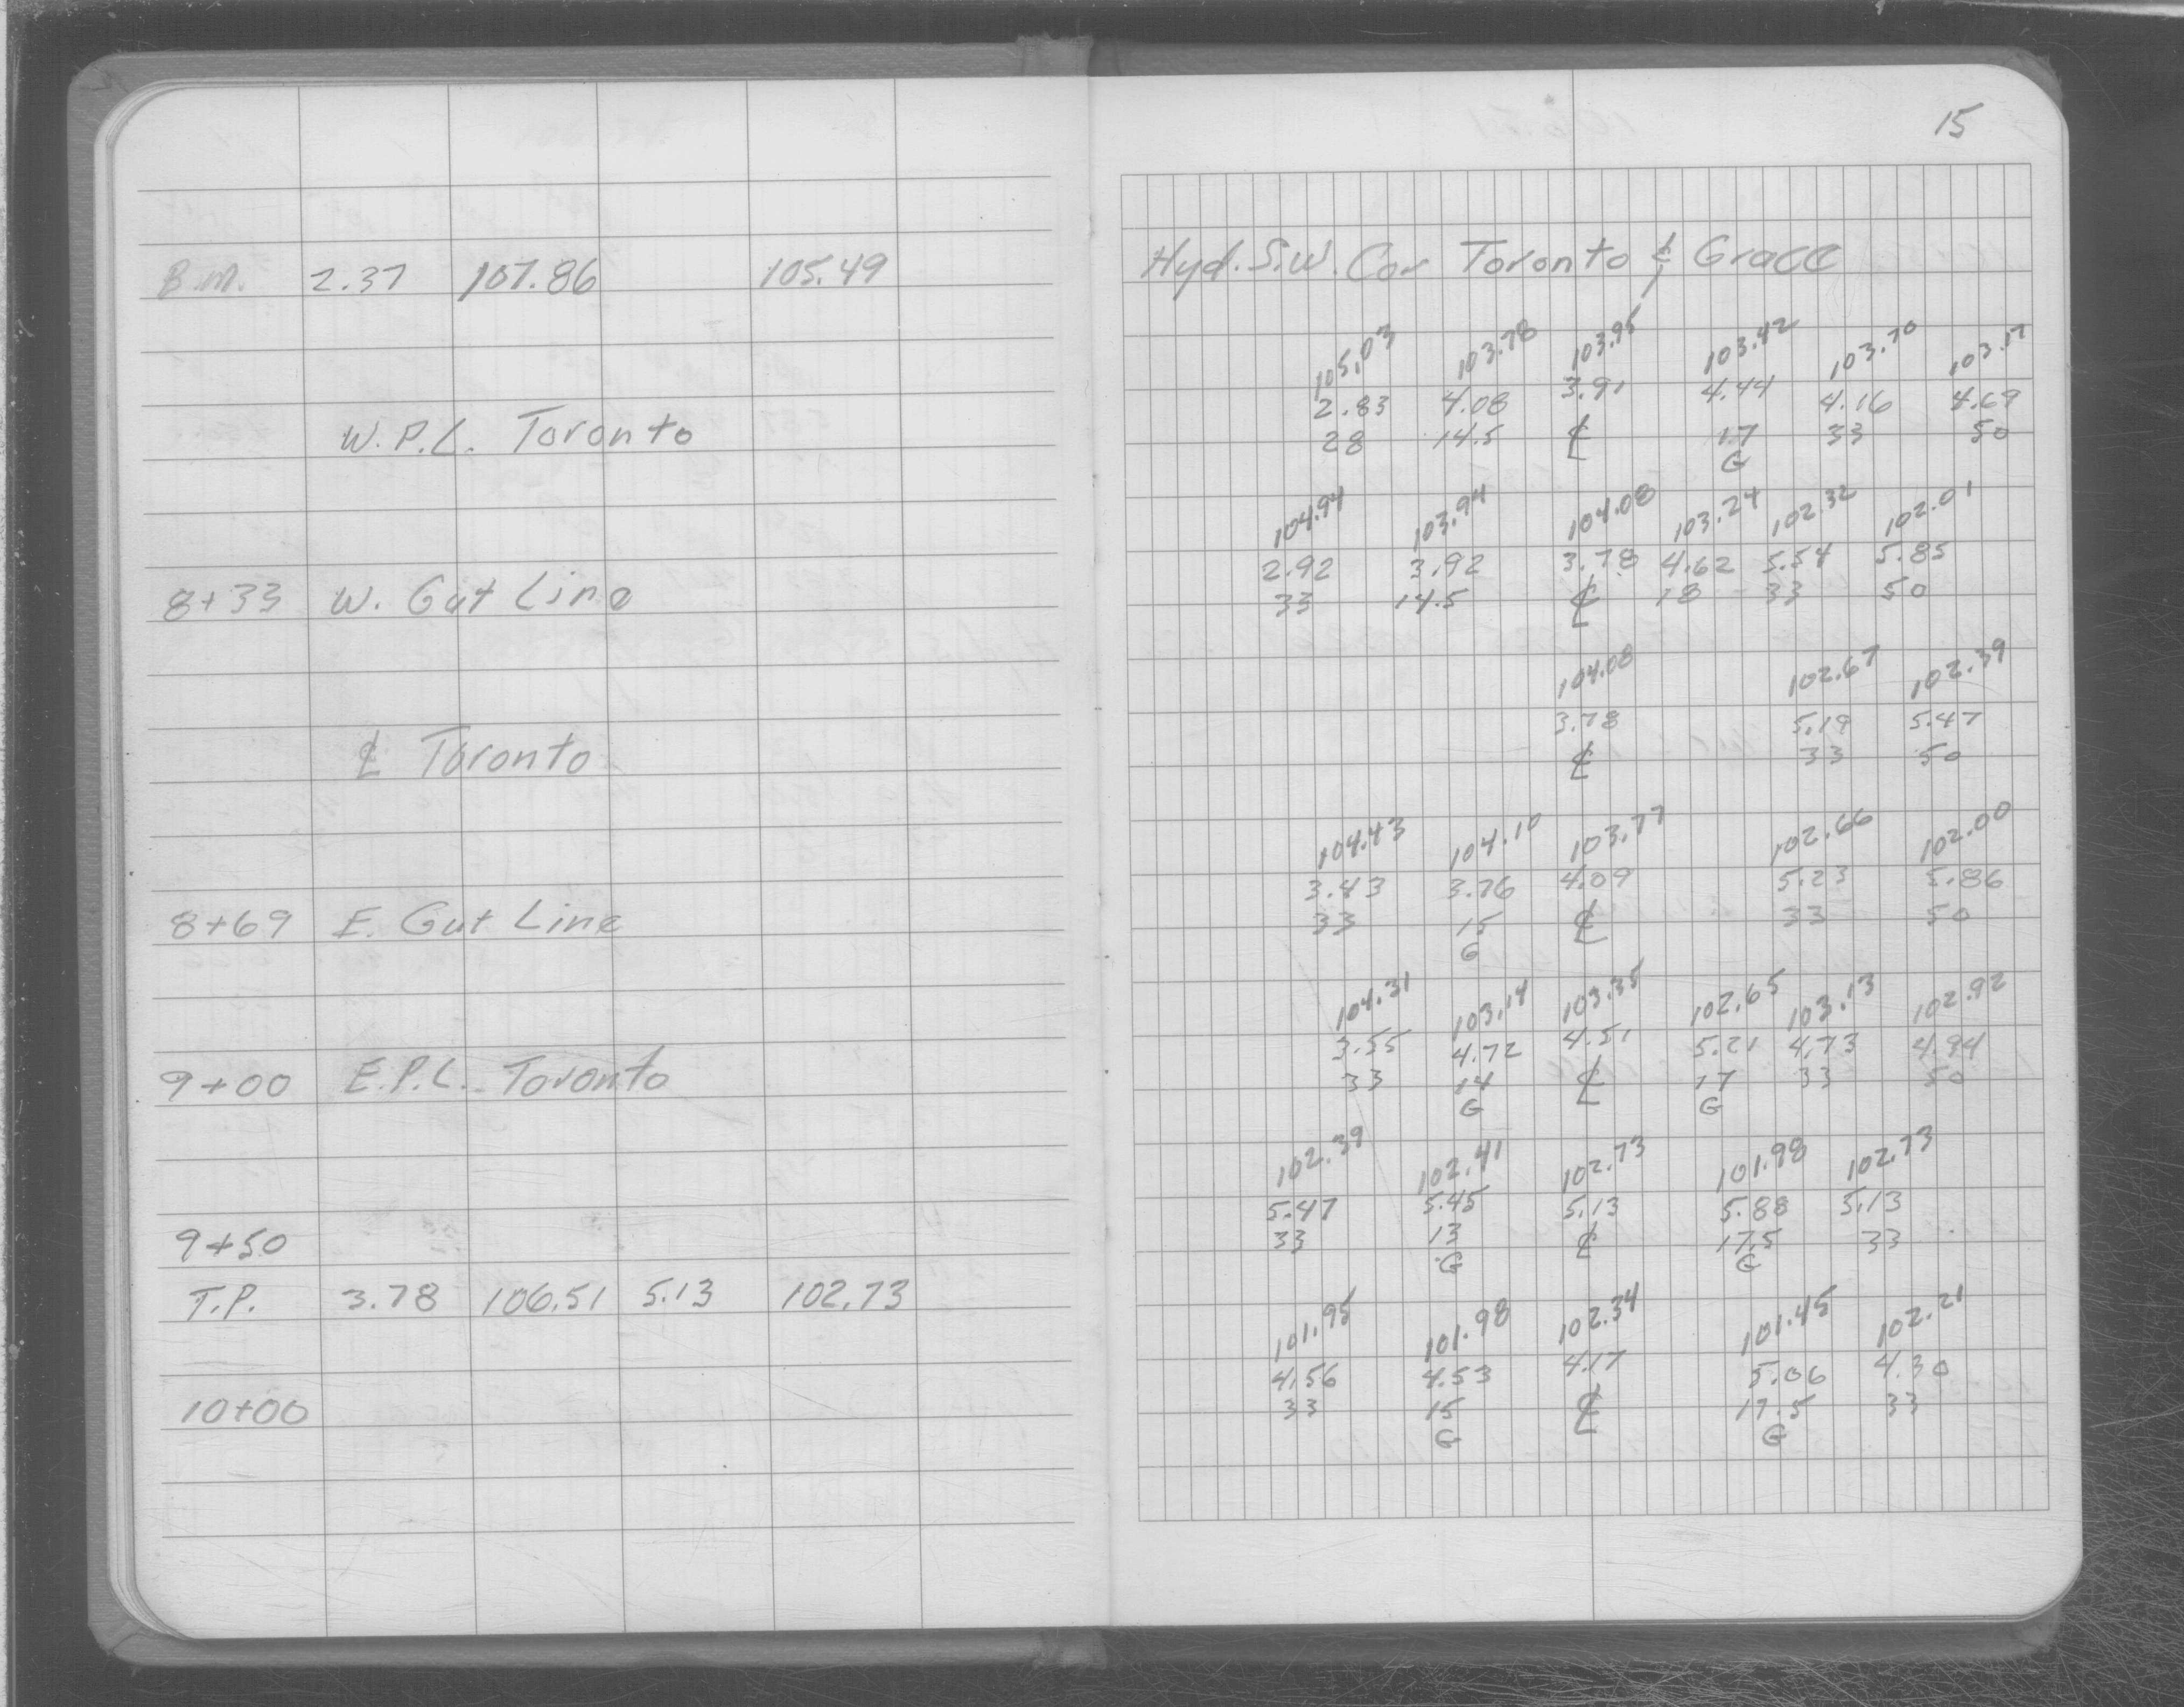 15
B.M. 2.37 107.86 105.49 Hyd. S.W. Cor Toronto & Grace
105.03 103.78 103.95 103.42 103.70 103.17
2.83 4.08 3.91 4.44 4.16 4.69
W.P.L. Toronto 28 14.5 ℄ 17 33 50
G
104.94 103.94 104.08 103.24 102.32 102.01
2.92 3.92 3.78 4.62 5.54 5.85
8+33 W. Gut Line 33 14.5 ℄ 18 33 50
104.08 102.67 102.39
3.78 5.19 5.47
℄ Toronto ℄ 33 50
104.43 104.10 103.77 102.66 102.00
3.43 3.76 4.09 5.23 5.86
8+69 E. Gut Line 33 15 ℄ 33 50
G
104.31 103.14 103.35 102.65 103.13 102.92
3.55 4.72 4.51 5.21 4.73 4.94
9+00 E.P.L. Toronto 33 14 ℄ 17 33 50
G G
102.39 102.41 102.73 101.98 102.73
5.47 5.45 5.13 5.88 5.13
9+50 33 13 ℄ 17.5 33
G G
T.P. 3.78 106.51 5.13 102.73
101.95 101.98 102.34 101.45 102.21
4.56 4.53 4.17 5.06 4.30
10+00 33 15 ℄ 17.5 33
G G